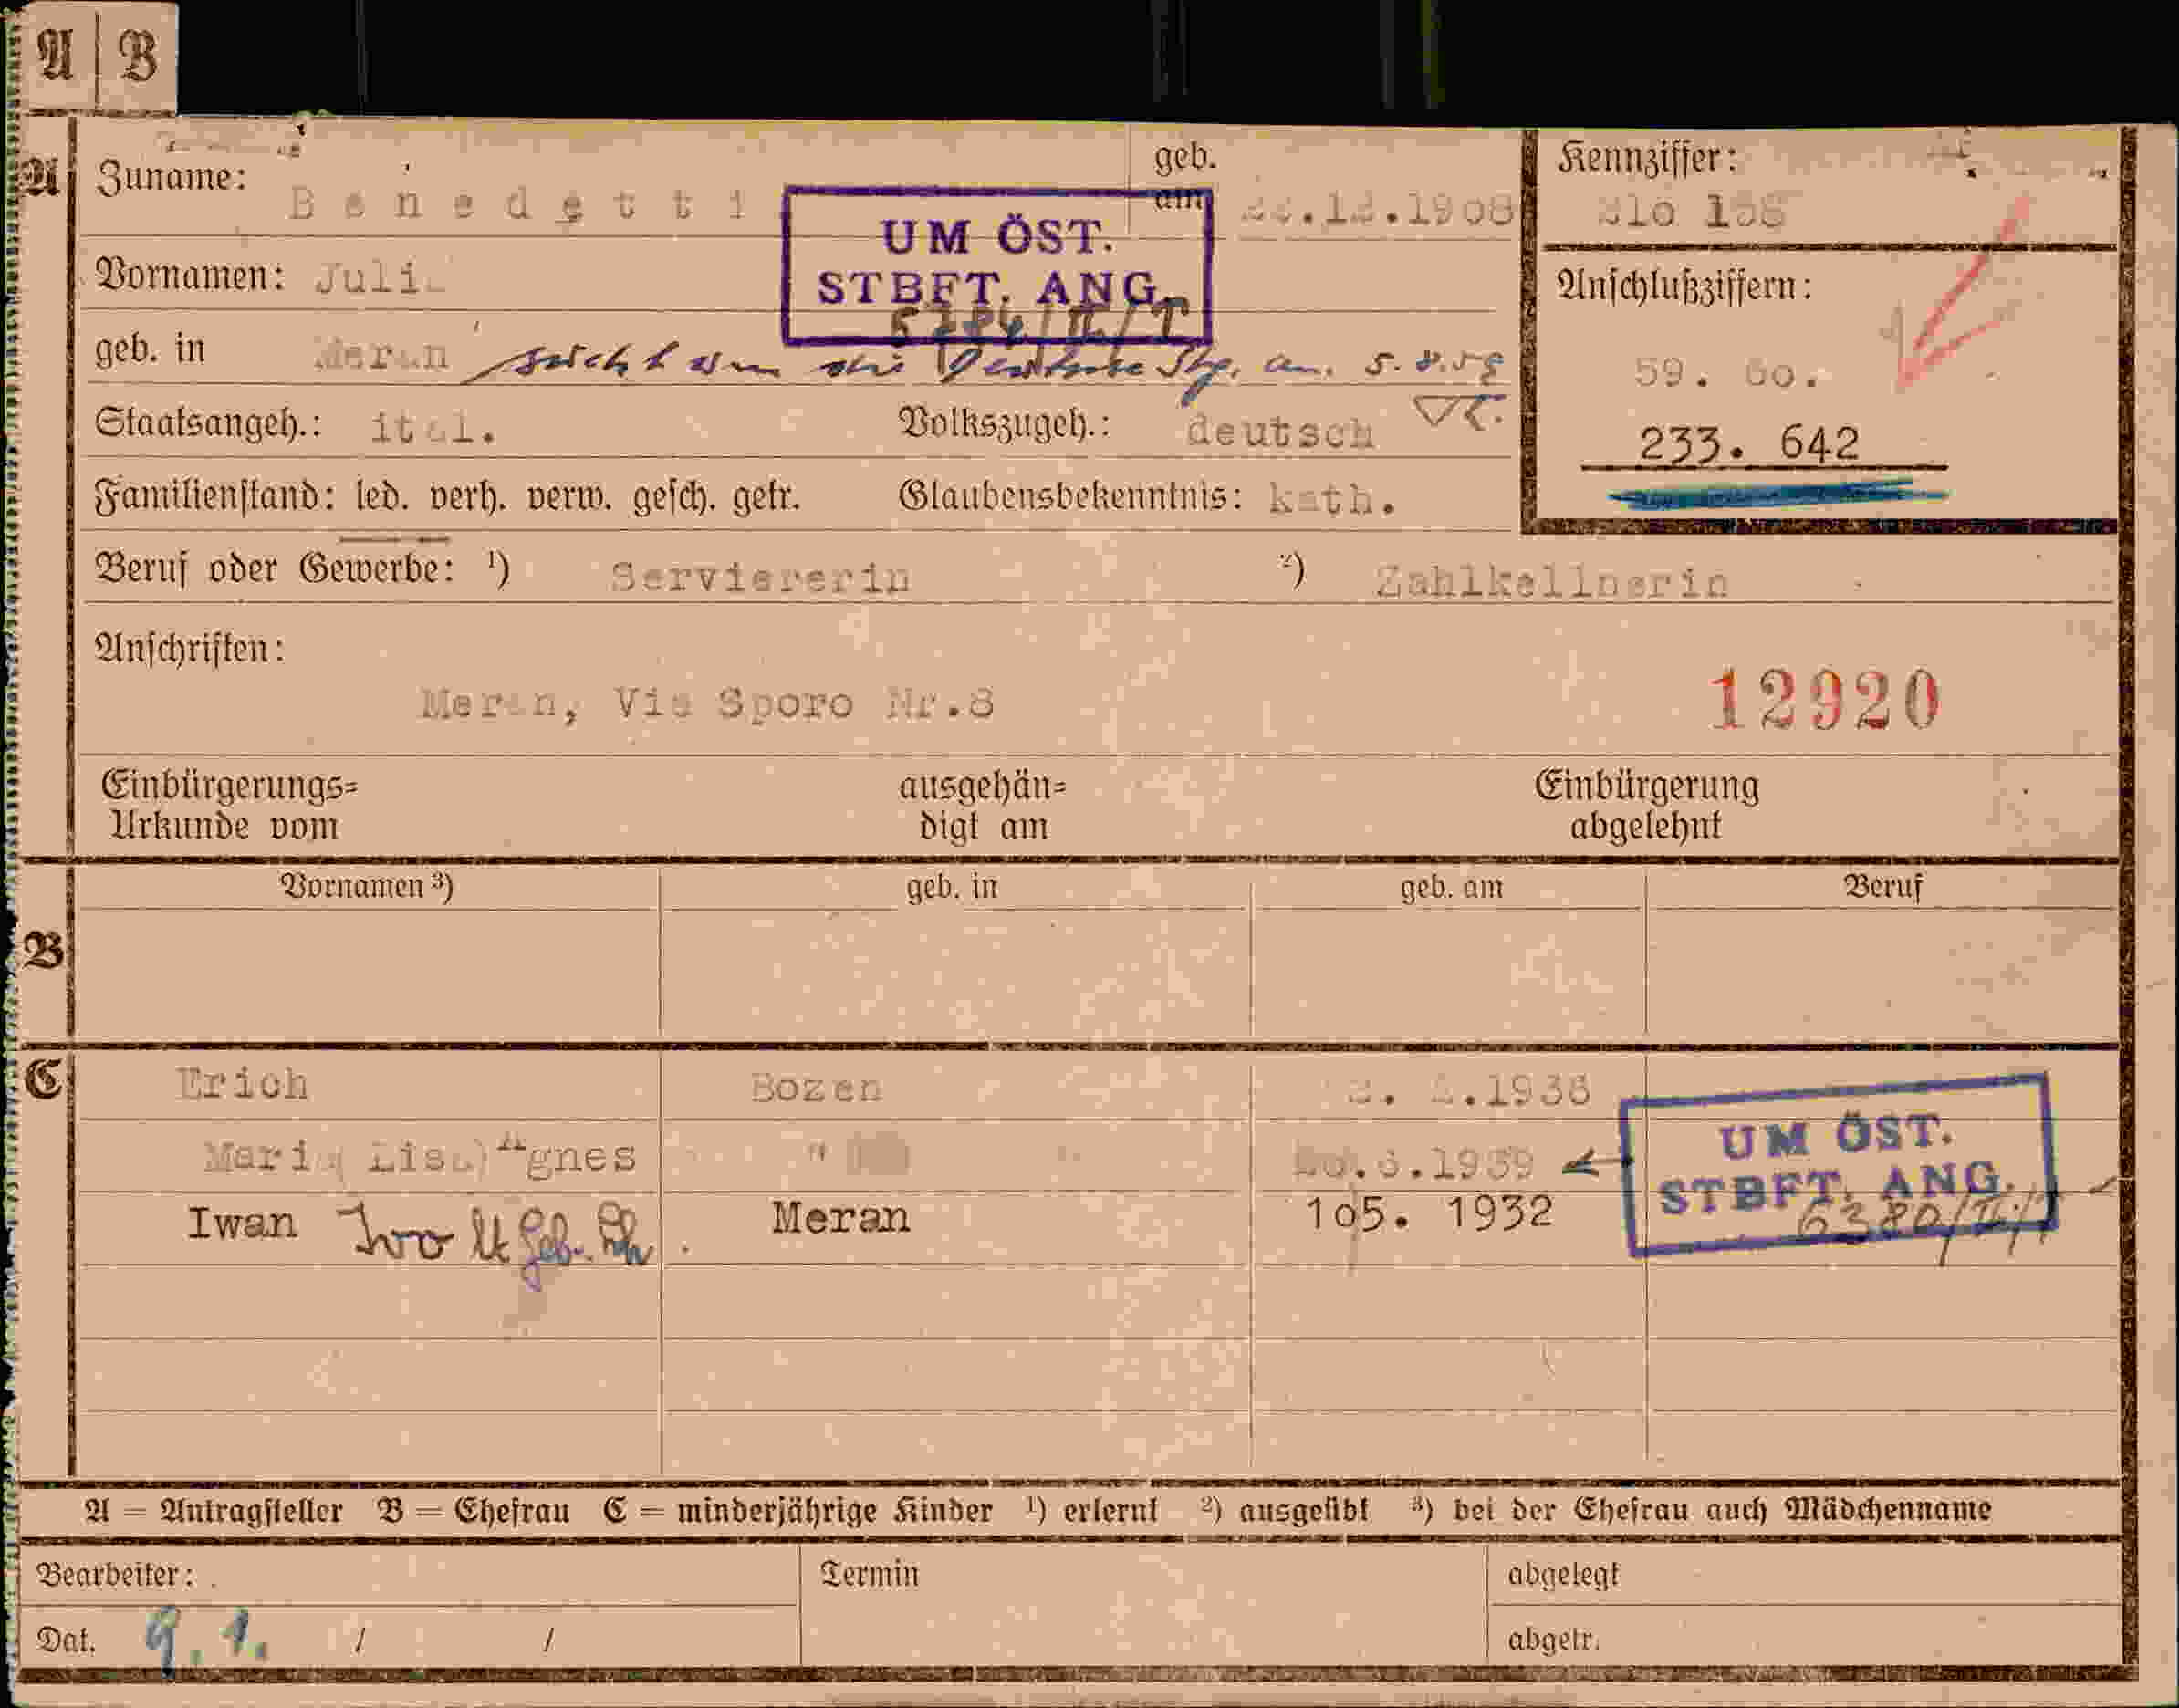 A | B
A
Zuname: Benedetti
geb. am .12.1908
Kennziffer:
UM ÖST.
STBFT. ANG.
Vornamen: Juli
Anschlußziffern:
geb. in Meran
5.8.
59. 60.
Staatsangeh.: ital. Volkszugeh.: deutsch
233. 642
Familienstand: led. verh. verw. gesch. getr. Glaubensbekenntnis: kath.
Beruf oder Gewerbe: ¹) Serviererin ²) Zahlkellnerin
Anschriften:
Meran, Via Sporo Nr.8
12920
Einbürgerungs=
Urkunde vom
ausgehän=
digt am
Einbürgerung
abgelehnt
B
Vornamen ³) geb. in geb. am Beruf
C
Erich Bozen .1938
Maria ( Lisa) Agnes " .6.1939
UM ÖST.
STBFT. ANG.
6380/II/T
Iwan Ivo lt. Geb. Meran 105. 1932
A = Antragsteller B = Ehefrau C = minderjährige Kinder ¹) erlernt ²) ausgeübt ³) bei der Ehefrau auch Mädchenname
Bearbeiter: Termin abgelegt
Dat. 9.1. / / abgetr.